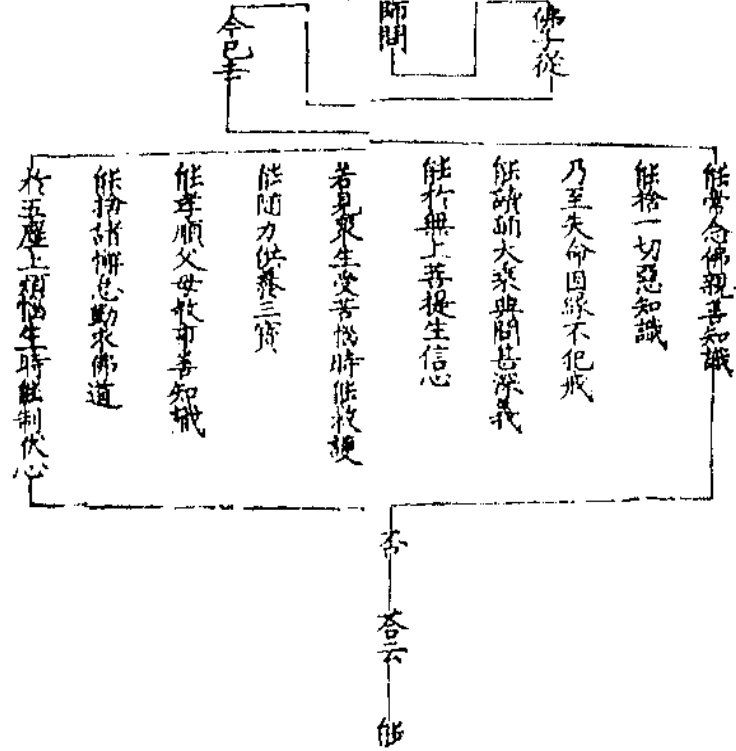 師問
佛子從
今已去
能常念佛親善知識
能捨一切惡知識
乃至失命因緣不犯戒
能讀誦大乘典問甚深義
能於無上菩提生信心
若見衆生受苦惱時能救護
能隨力供養三寳
能孝順父母敬事善知識
能捨諸懈怠勤求佛道
於五塵上煩惱生時能制伏心
否
荅云
能